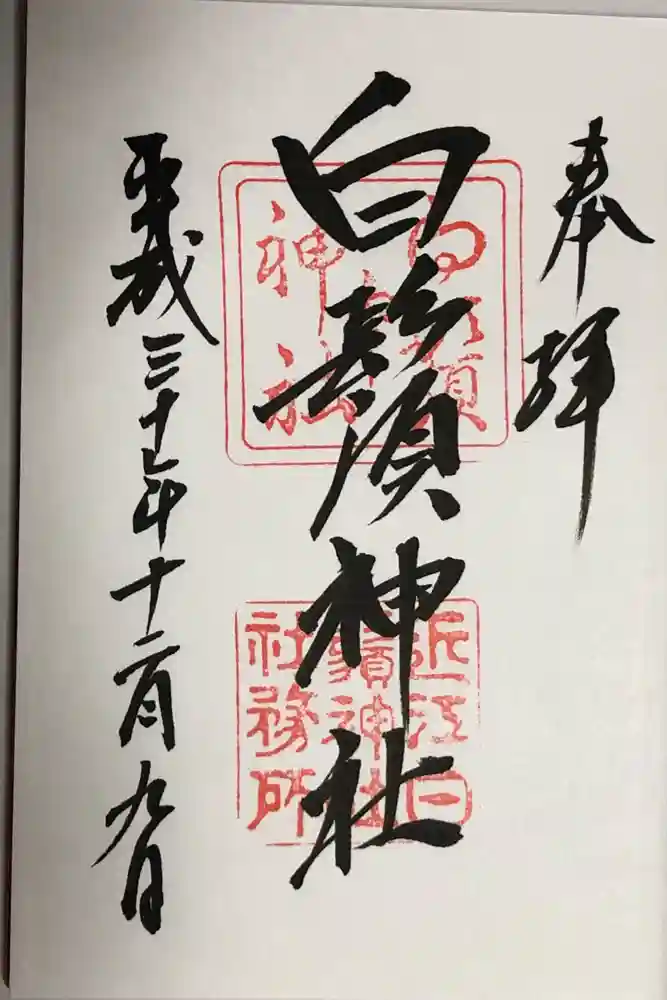 奉拝
白鬚神社
平成三十年十二月九日
白鬚神社
近江白
鬚神社
社務所